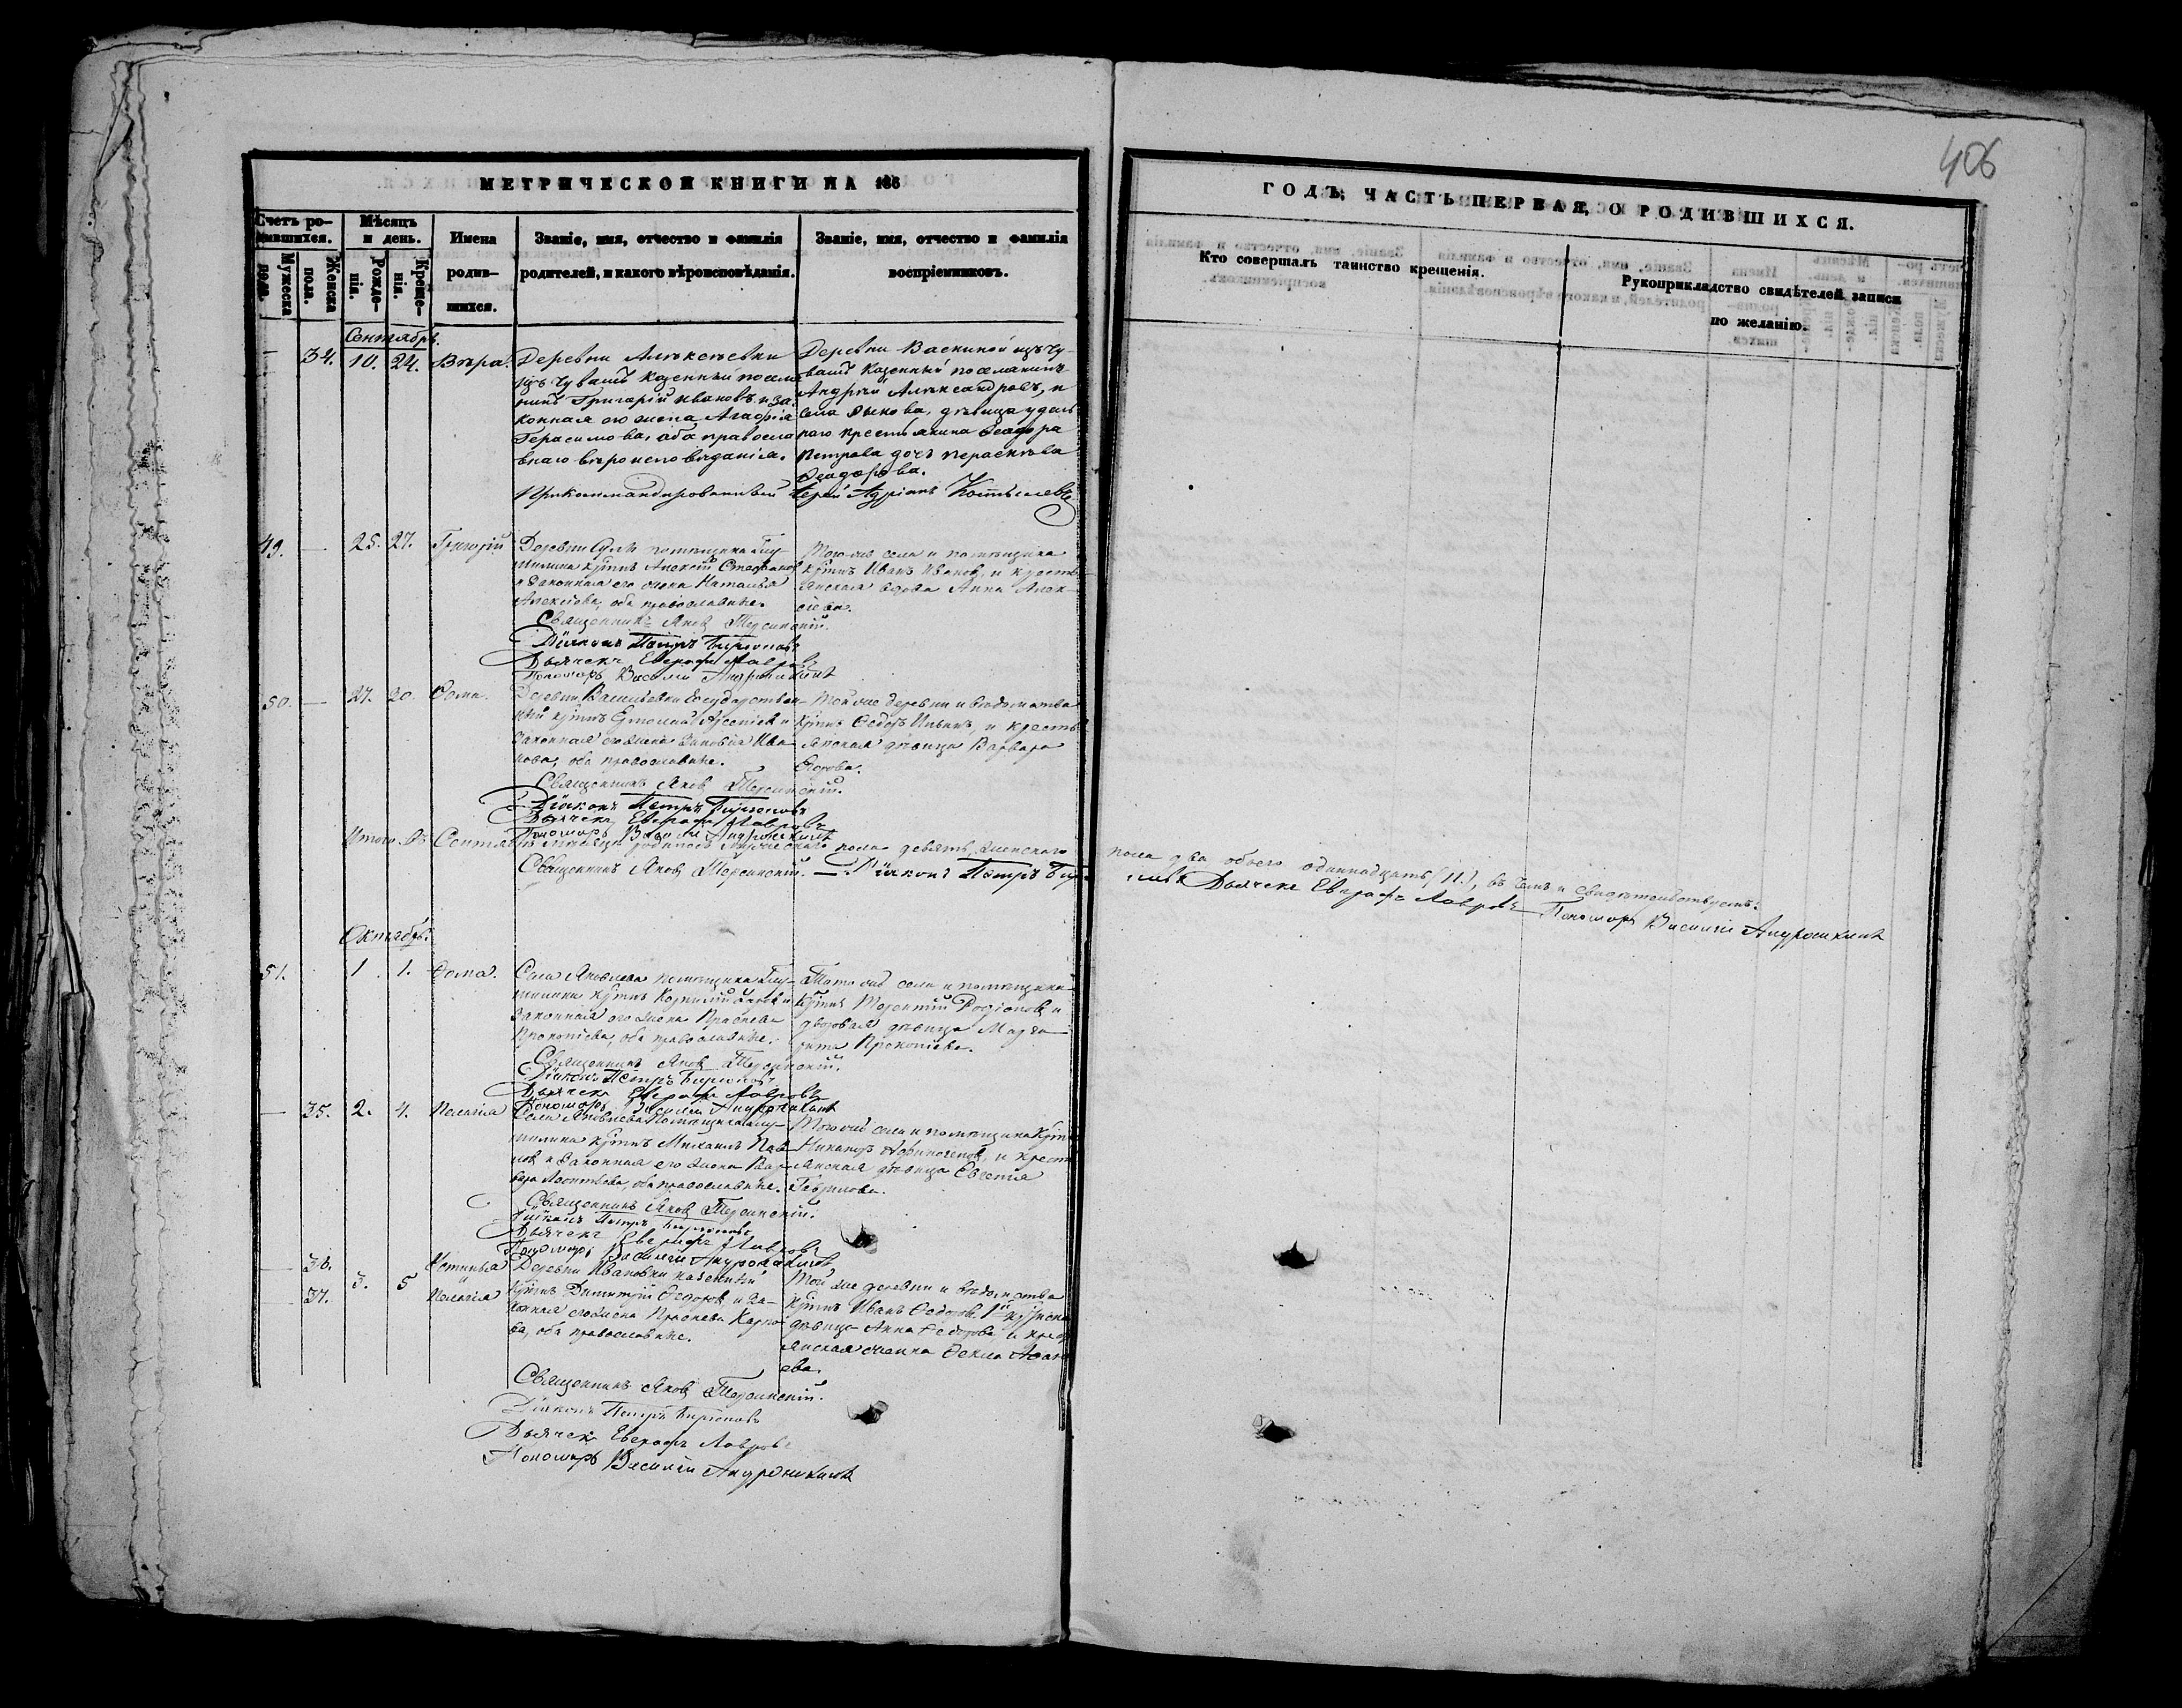 406
МЕТРИЧЕСКОЙ КНИГИ НА 186
ГОДЪ, ЧАСТЬ ПЕРВАЯ, О РОДИВШИХСЯ.
Счетъ родившихся.
Мужеска пола.
Женска пола.
Мѣсяцъ и день.
Рожденія.
Крещенія.
Имена родившихся.
Званіе, имя, отчество и фамилія
родителей, и какого вѣроисповѣданія.
Званіе, имя, отчество и фамилія
воспріемниковъ.
Кто совершалъ таинство крещенія.
Рукоприкладство свидѣтелей записи
по желанію.
Сентябрь.
— 34. 10. 24. Вѣра.
Деревни Алексѣевки
изъ чувашъ казенный посел
нинъ Григорій Ивановъ и за
конная его жена Агафія
Герасимова, оба правосла
внаго вѣроисповѣданія.
Деревни Васкиной изъ чу-
вашъ казенный поселянинъ
Андрей Александровъ, и
села дѣвица удель
наго крестьянина Феодора
Петрова дочь Параскева
Феодорова.
Прикоммандированный Іерей Адріанъ
49. — 25. 27. Григорій
Деревни помѣщика
кр҃тнъ Алексѣй Стефановъ
и законная его жена Наталья
Алексѣева, оба православные.
Того же села и помѣщика
кр҃тнъ Иванъ Ивановъ, и кресть-
янская вдова Анна Алек-
сѣева.
Священникъ Яковъ Терсинскій.
Діаконъ Петръ Бирюковъ
Дьячекъ Евграфъ Лавровъ
Пономарь Василій Андроникинъ
50. — 27. 30. Фома.
Деревни Васильевки Государствен-
ный кр҃тнъ Ермолай Арсеніевъ и
законная его жена Зиновія Ива
нова, оба православные.
Той же деревни и вѣдомства
кр҃тнъ Федоръ Ильинъ, и кресть
янская дѣвица Варвара
Егорова.
Священникъ Яковъ Терсинскій.
Діаконъ Петръ Бирюковъ
Дьячекъ Евграфъ Лавровъ
Пономарь Василій Андроникинъ
Итого въ Сентябрѣ мѣсяцѣ родилось мужескаго пола девять, женскаго
пола два обоего одиннадцать (11.), въ чемъ и свидѣтельствуемъ:
Священникъ Яковъ Терсинскій. — Діаконъ Петръ Бирю
ковъ Дьячекъ Евграфъ Лавровъ Пономарь Василій Андроникинъ
Октябрь.
51. 1. 1. Фома.
Села Яковлева помѣщика
кр҃тнъ Корнилій и
законная его жена Праскева
Прокопіева, оба православные.
Того же села и помѣщика
кр҃тнъ Терентій Родіоновъ и
дворовая дѣвица Марга
рита Прокопіева.
Священникъ Яковъ Терсинскій.
Діаконъ Петръ Бирюковъ
Дьячекъ Евграфъ Лавровъ
Пономарь Василій Андроникинъ
— 35. 2. 4. Пелагія
Села Яковлева помѣщика
кр҃тнъ Михаилъ Пав
ловъ и законная его жена Вар
вара Леонтьева, оба православные.
Того же села и помѣщика кр҃тнъ
Никаноръ Афиногеновъ, и крест
янская дѣвица Евгенія
Гаврилова.
Священникъ Яковъ Терсинскій.
Діаконъ Петръ Бирюковъ
Дьячекъ Евграфъ Лавровъ
Пономарь Василій Андроникинъ
— 36. Устинья
и
— 37. 3. 5 Пелагія
Деревни Ивановки казенный
кр҃тнъ Димитрій Федоровъ и за-
конная его жена Праскева Карпо
ва, оба православные.
Той же деревни и вѣдомства
кр҃тнъ Иванъ Федоровъ,
дѣвица Анна Федорова и крест
янская женка Фекла
ева.
Священникъ Яковъ Терсинскій.
Діаконъ Петръ Бирюковъ
Дьячекъ Евграфъ Лавровъ
Пономарь Василій Андроникинъ